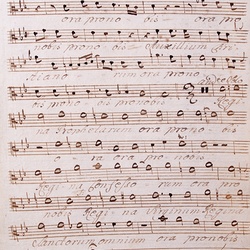 ora pro no bis ora pro
nobis pro no bis Auxilium Xri-
stiano rum ora pro no
bis pro nobis Regi
na Prophetarum ora pro no
ra ora pro nobis
Regina Confesso rum ora pro
nobis Regi na Virginum Regina
Sanctorum omnium ora pro nobis